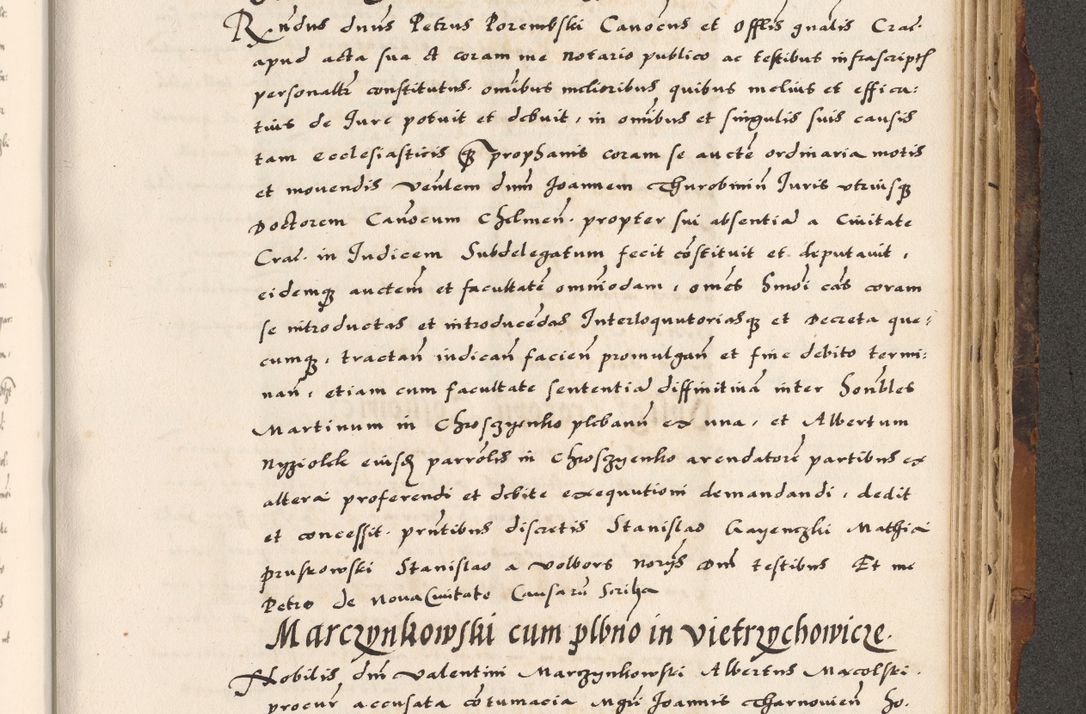 Rndus dnus Petrus Porembski Canocus et Offlis gnalis Crac.
apud acta sua et coram me notario publico ac testibus infrascriptis
personalr constitutus. omibus melioribus quibus melius et effica:
tius de Jure potuit et debuit, in omibus et singulis suis causis
tam ecclesiasticis quam prophanis coram se aucte ordinaria motis
et mouendis Venlem dnm Joannem Thurobinin Juris vtriusq
Doctorem Canocum Chelmen. propter sui absentia a Ciuitate
Crac. in Judicem Subdelegatum fecit costituit et deputauit,
eidemq auctem et facultate omnimodam, omes hmoi cas coram
se introductas et introducedas Interloquutoriasq et Decreta que:
cumq, tractan iudican facien promulgan et fine debito termi:
nan, etiam cum facultate sententia diffinitiua inter honbles
Martinum in Chroszyenko plebanu ex una, et Albertum
Nyziolek eiusd parrolis in Chroszyenko arendatore partibus ex
altera proferendi et debite exequutioni demandandi, dedit
et concessit. prntibus discretis Stanislao Gayenczki Mathia
Pruskowski Stanislao a Volbors norijs Dni testibus Et me
Petro de Noua Ciuitate Causaru Scriba
Marczynkowski cum plbno in Vietrzychowicze.
Nobilis dni Valentini Marzynkowski Albertus Marcolski.
procur accusata cotumacia Mgri Joannis Tharnouien ho.